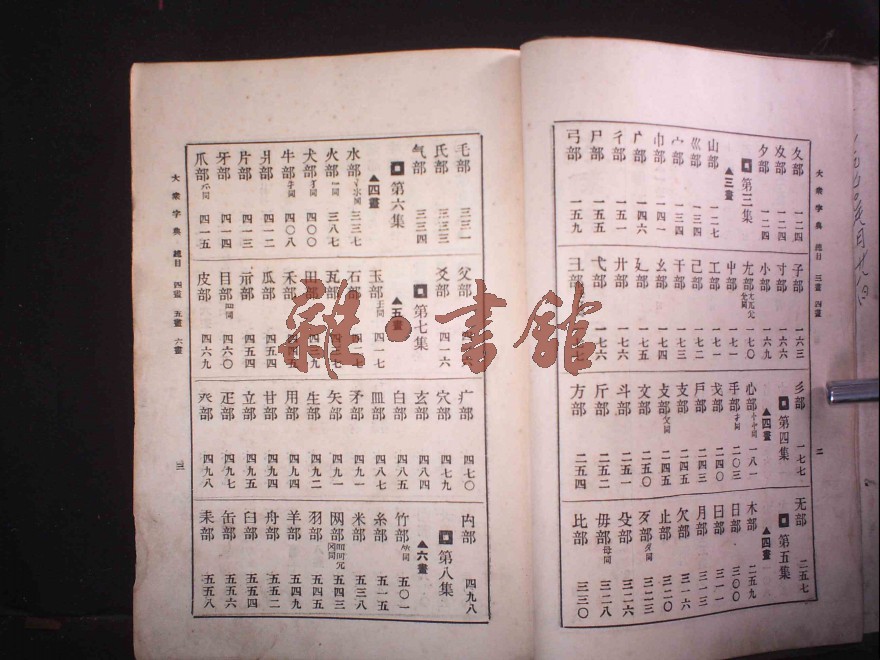 大衆字典 總目 三畫 四畫
二
夂部 一二四
夊部 一二四
夕部 一二四
第三集
▲三畫
山部 一二七
巛部 一三四
宀部 一三四
巾部 一四一
广部 一四六
彳部 一五一
尸部 一五五
弓部 一五九
子部 一六三
寸部 一六六
小部 一六九
尢部 一七〇
屮部 一七一
工部 一七一
己部 一七二
干部 一七三
幺部 一七四
廴部 一七五
廾部 一七六
弋部 一七六
彐部
彡部 一七七
第四集
▲四畫
心部 一八一
手部 才同 二〇三
戈部 二四〇
戶部 二四三
支部 二四五
攴部 攵同 二四五
文部 二五〇
斗部 二五一
斤部 二五二
方部 二五四
无部 二五七
第五集
▲四畫
木部 二五九
日部 三〇〇
曰部 三一二
月部 三一三
欠部 三一六
止部 三二〇
歹部 歺同 三二三
殳部 三二六
毋部 母同 三二八
比部 三三〇
大衆字典 總目 四畫 五畫 六畫
三
毛部 三三一
氏部 三三三
气部 三三四
第六集
▲四畫
水部 氵氺同 三三七
火部 灬同 三八七
犬部 犭同 四〇〇
牛部 牜同 四〇八
爿部 四一二
片部 四一三
牙部 四一四
爪部 爫同 四一五
父部
爻部 四一六
第七集
▲五畫
玉部 王同 四一七
石部
瓦部
田部 四三九
禾部 四四五
瓜部 四五四
示部 四五四
目部 罒同 四六〇
皮部 四六九
疒部 四七〇
穴部 四七九
玄部 四八四
白部 四八五
皿部 四八七
矛部 四九一
矢部 四九一
生部 四九二
用部 四九四
甘部 四九四
立部 四九五
疋部 四九七
癶部 四九八
禸部 四九八
第八集
▲六畫
竹部 ⺮同 五〇一
糸部 五一五
米部 五三八
网部 五四三
羽部 五四五
羊部 五四九
舟部 五五二
臼部 五五四
缶部 五五六
耒部 五五八
雜·書館